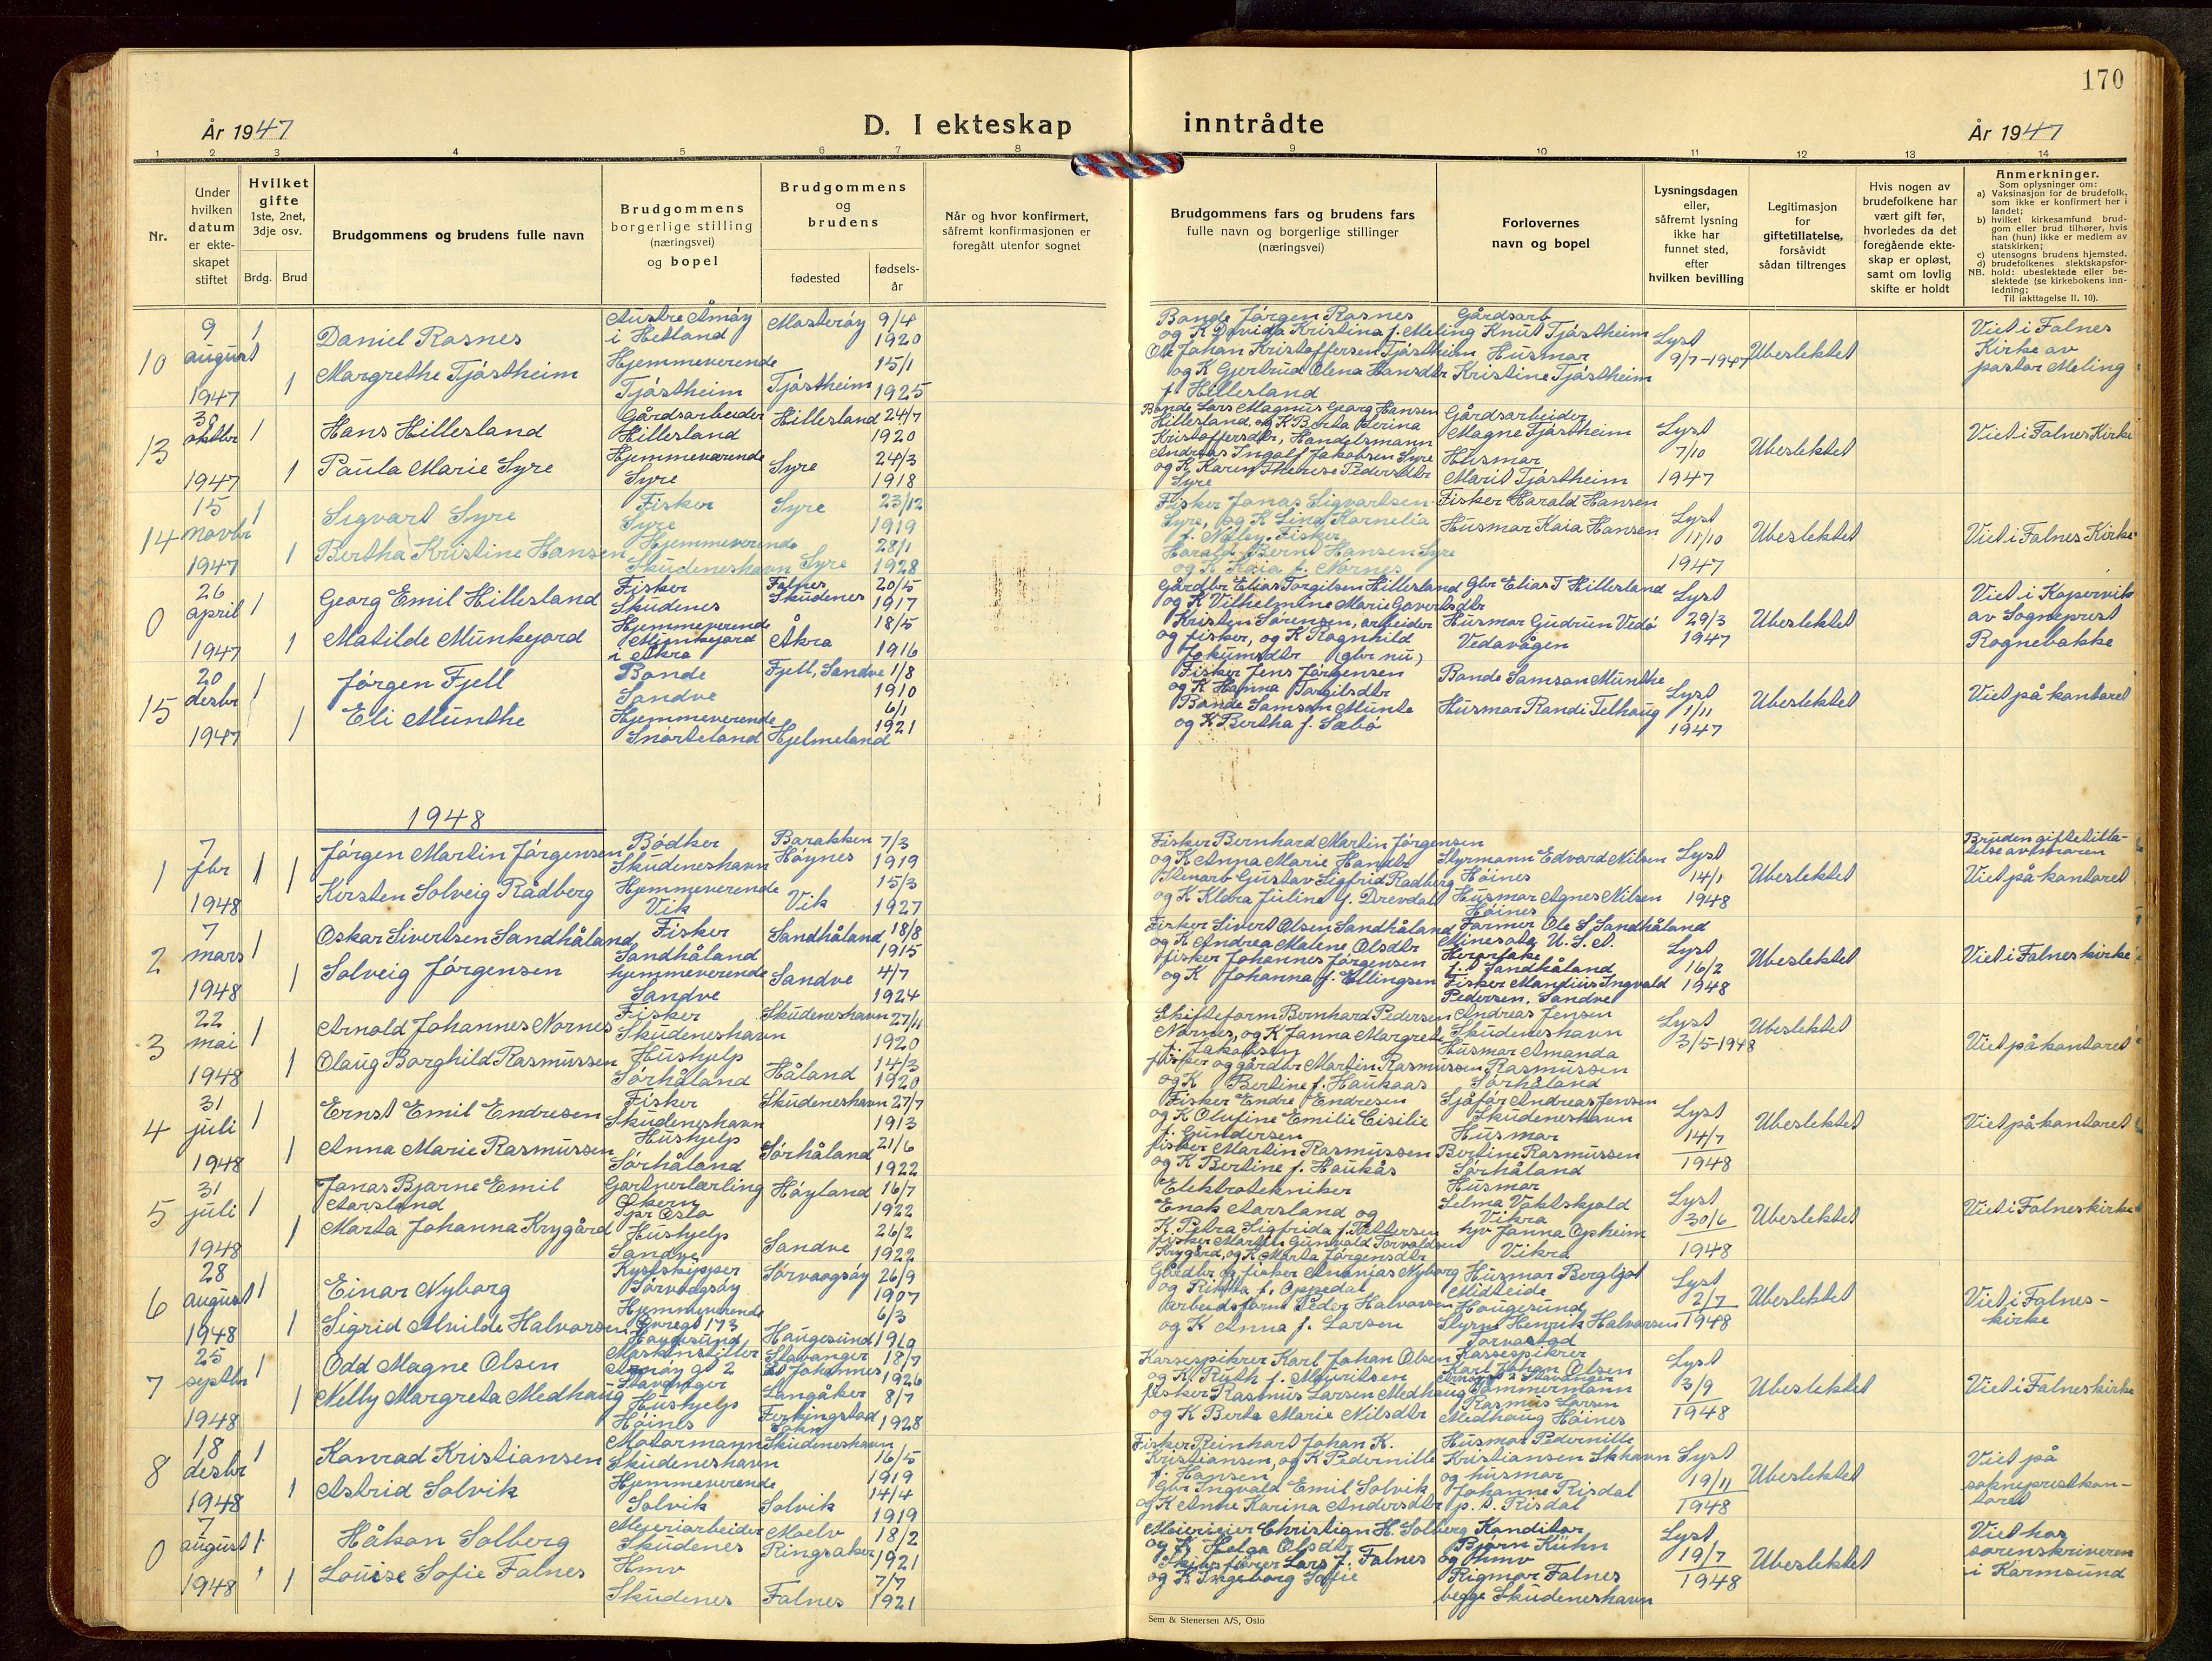 170
År 1947
D. I ekteskap
inntrådte
År 1947
1 2 3 4 5 6 7 8 9 10 11 12 13 14
Nr.
Under
hvilken
datum
er ekte-
skapet
stiftet
Hvilket
gifte
1ste, 2net,
3dje osv.
Brdg.
Brud
Brudgommens og brudens fulle navn
Brudgommens
borgerlige stilling
(næringsvei)
og bopel
Brudgommens
og
brudens
fødested
fødsels-
år
Når og hvor konfirmert,
såfremt konfirmasjonen er
foregått utenfor sognet
Brudgommens fars og brudens fars
fulle navn og borgerlige stillinger
(næringsvei)
Forlovernes
navn og bopel
Lysningsdagen
eller,
såfremt lysning
ikke har
funnet sted,
efter
hvilken bevilling
Legitimasjon
for
giftetillatelse,
forsåvidt
sådan tiltrenges
Hvis nogen av
brudefolkene har
vært gift før,
hvorledes da det
foregående ekte-
skap er opløst,
samt om lovlig
skifte er holdt
Anmerkninger.
Som oplysninger om:
a) Vaksinasjon for de brudefolk,
som ikke er konfirmert her i
landet;
b) hvilket kirkesamfund brud-
gom eller brud tilhører, hvis
han (hun) ikke er medlem av
statskirken;
c) utensogns brudens hjemsted.
d) brudefolkenes slektskapsfor-
NB. hold: ubeslektede eller be-
slektede (se kirkebokens inn-
ledning;
Til iakttagelse II. 10).
10
9
august
1947
1
1
Daniel Rasnes
Margrethe Tjøstheim
Austre Åmøy
i Hetland
Hjemmeverende
Tjøstheim
Mosterøy
Tjøstheim
9/4
1920
15/1
1925
Bonde Jørgen Rasnes
og K Davida Kristina f. Meling
Ole Johan Kristoffersen Tjøstheim
og K Gjertrud Olena Hansdtr
f. Hillesland
Gårdsarb
Knut Tjøstheim
Husmor
Kristine Tjøstheim
Lyst
9/7-1947
Ubeslektet
Viet i Falnes
Kirke av
pastor Meling
13
30
oktbr
1947
1
1
Hans Hillesland
Paula Marie Syre
Gårdsarbeider
Hillesland
Hjemmeverende
Syre
Hillesland
Syre
24/7
1920
24/3
1918
Bonde Lars Magnus Georg Hansen
Hillesland, og K Berta Serina
Kristoffersdtr, Handelsmann
Andreas Ingolf Jakobsen Syre
og K Karen Therese Pedersdtr
Syre
Gårdsarbeider
Magne Tjøstheim
Husmor
Marit Tjøstheim
Lyst
7/10
1947
Ubeslektet
Viet i Falnes Kirke
14
15
novbr
1947
1
1
Sigvart Syre
Bertha Kristine Hansen
Fisker
Syre
Hjemmeverende
Skudeneshavn
Syre
Syre
23/12
1919
28/1
1928
Fisker Jonas Sigvartsen
Syre, og K Lina Kornelia
Fisker
Harald Bernt Hansen Syre
og K Kaia f. Nornes
Fisker Harald Hansen
Husmor Kaia Hansen
Lyst
11/10
1947
Ubeslektet
Viet i Falnes Kirke
0
26
april
1947
1
1
Georg Emil Hillesland
Matilde Munkejord
Fisker
Skudenes
Hjemmeverende
Munkejord
i Åkra
Falnes
Skudenes
Åkra
20/5
1917
18/5
1916
Gårdbr Elias Torgilsen Hillesland
og K Vilhelmine Marie Govertsdtr
Kristen Sørensen, arbeider
og fisker, og K Ragnhild
Jokumsdtr (gbr nu)
Gbr Elias T Hillesland
Husmor Gudrun Vedø
Vedavågen
Lyst
29/3
1947
Ubeslektet
Viet i Kopervik
av Sogneprest
Rognebakke
15
20
desbr
1947
1
1
Jørgen Fjell
Eli Munthe
Bonde
Sandve
Hjemmeverende
Snorteland
Fjell, Sandve
Hjelmeland
1/8
1910
6/1
1921
Fisker Jens Jørgensen
og K Hanna Torgilsdtr
Bonde Samson Munte
og K Bertha f. Sæbø
Bonde Samson Munthe
Husmor Randi Telhaug
Lyst
1/11
1947
Ubeslektet
Viet på kontoret
1948
1
7
fbr
1948
1
1
Jørgen Martin Jørgensen
Kirsten Solveig Rådberg
Bødker
Skudeneshavn
Hjemmeverende
Vik
Barakken
Høynes
Vik
7/3
1919
15/3
1927
Fisker Bernhard Martin Jørgensen
og K Anna Marie Hansdtr
Stenarb Gustav Sigfrid Radberg
og K Klara Juline f. Drevdal
Styrmann Edvard Nilsen
Høines
Husmor Agnes Nilsen
Høines
Lyst
14/1
1948
Ubeslektet
Bruden giftetilla-
telse av moren
Viet på kontoret
2
7
mars
1948
1
1
Oskar Sivertsen Sandhåland
Solveig Jørgensen
Fisker
Sandhåland
hjemmeverende
Sandve
Sandhåland
Sandve
18/8
1915
4/7
1924
Fisker Sivert Olsen Sandhåland
og K Andrea Malene Olsdtr
fisker Johannes Jørgensen
og K Johanna f. Ellingsen
Farmer Ole S Sandhåland
Minesota U.S.A.
Sandhåland
Fisker Mandius Ingvald
Pedersen, Sandve
Lyst
16/2
1948
Ubeslektet
Viet i Falnes kirke
3
22
mai
1948
1
1
Arnold Johannes Nornes
Olaug Borghild Rasmussen
Fisker
Skudeneshavn
Hushjelp
Sørhåland
Skudeneshavn
Håland
27/11
1920
14/3
1920
Skifteform Bernhard Pedersen
Nornes, og K Janna Margrete
f. Jakobsen
fisker og gårdbr Martin Rasmussen
og K Bertine f. Haukaas
Andreas Jensen
Skudeneshavn
Husmor Amanda
Rasmussen
Sørhåland
Lyst
3/5-1948
Ubeslektet
Viet på kontoret
4
31
juli
1948
1
1
Ernst Emil Endresen
Anna Marie Rasmussen
Fisker
Skudeneshavn
Hushjelp
Sørhåland
Skudeneshavn
Sørhåland
27/7
1913
21/6
1922
Fisker Endre Endresen
og K Olufine Emilie Cisilie
f. Gundersen
fisker Martin Rasmussen
og K Bertine f. Haukås
Sjåfør Andreas Jensen
Skudeneshavn
Husmor
Bertine Rasmussen
Sørhåland
Lyst
14/7
1948
Ubeslektet
Viet på kontoret
5
31
juli
1948
1
1
Jonas Bjarne Emil
Aarsland
Marta Johanna Krygård
Gartnerlærling
Økern
pr Oslo
Hushjelp
Sandve
Høyland
Sandve
16/7
1922
26/2
1922
Elektrotekniker
Enok Aarsland og
K Petra Sigfrida f. Pettersen
fisker Martin Gunvald Torvaldsen
Krygård, og K Marta Jørgensdtr
Husmor
Selma Vaktskjold
Vikra
hv Janna Opheim
Vikra
Lyst
30/6
1948
Ubeslektet
Viet i Falnes kirke
6
28
august
1948
1
1
Einar Nyborg
Sigrid Alvilde Halvorsen
Kystskipper
Sørvaagsøy
Hjemmeverende
Øvregt 173
Haugesund
Sørvaagsøy
Haugesund
26/9
1907
6/3
1919
Gårdbr og fisker Ananias Nyborg
og Rikka f. Oppedal
arbeidsform Peder Halvorsen
og K Anna f. Larsen
Husmor Bergljot
Midteide
Haugesund
Styrm Henrik Halvorsen
Torvastad
Lyst
2/7
1948
Ubeslektet
Viet i Falnes-
kirke
7
25
septbr
1948
1
1
Odd Magne Olsen
Nelly Margreta Medhaug
Maskinsetter
Armøy gt 2
Stavanger
Hushjelp
Høines
Stavanger
St Johannes
Langåker
Ferkingstad
18/7
1926
8/7
1928
Kassespikrer Karl Johan Olsen
og K Ruth f. Mauritsen
fisker Rasmus Larsen Medhaug
og K Berta Marie Nilsdtr
Kassespikrer
Karl Johan Olsen
Armøygt 2 Stavanger
Tømmermann
Rasmus Larsen
Medhaug Høines
Lyst
3/9
1948
Ubeslektet
Viet i Falnes kirke
8
18
desbr
1948
1
1
Konrad Kristiansen
Astrid Solvik
Motormann
Skudeneshavn
Hjemmeverende
Solvik
Skudeneshavn
Solvik
16/5
1919
14/4
1919
Fisker Reinhart Johan K.
Kristiansen, og K Pedernille
f. Hansen
Gbr Ingvald Emil Solvik
og K Anne Karina Andersdtr
Husmor Pedernille
Kristiansen Skhavn
og husmor
Johanne Risdal
p.t. Risdal
Lyst
19/11
1948
Ubeslektet
Viet på
sokneprestkon-
toret
0
7
august
1948
1
1
Håkon Solberg
Louise Sofie Falnes
Meieriarbeider
Skudenes
Hmv
Skudenes
Moelv
Ringsaker
Falnes
18/2
1921
7/7
1921
Meierieier Christian H. Solberg
og K Helga Olsdtr
Skibsfører Lars J. Falnes
og K Ingeborg Sofie
Konditor
Bjørn Kühn
og hmv
Rigmor Falnes
begge Skudeneshavn
Lyst
19/7
1948
Ubeslektet
Viet hos
sorenskriveren
i Karmsund
Sem & Stenersen A/S, Oslo